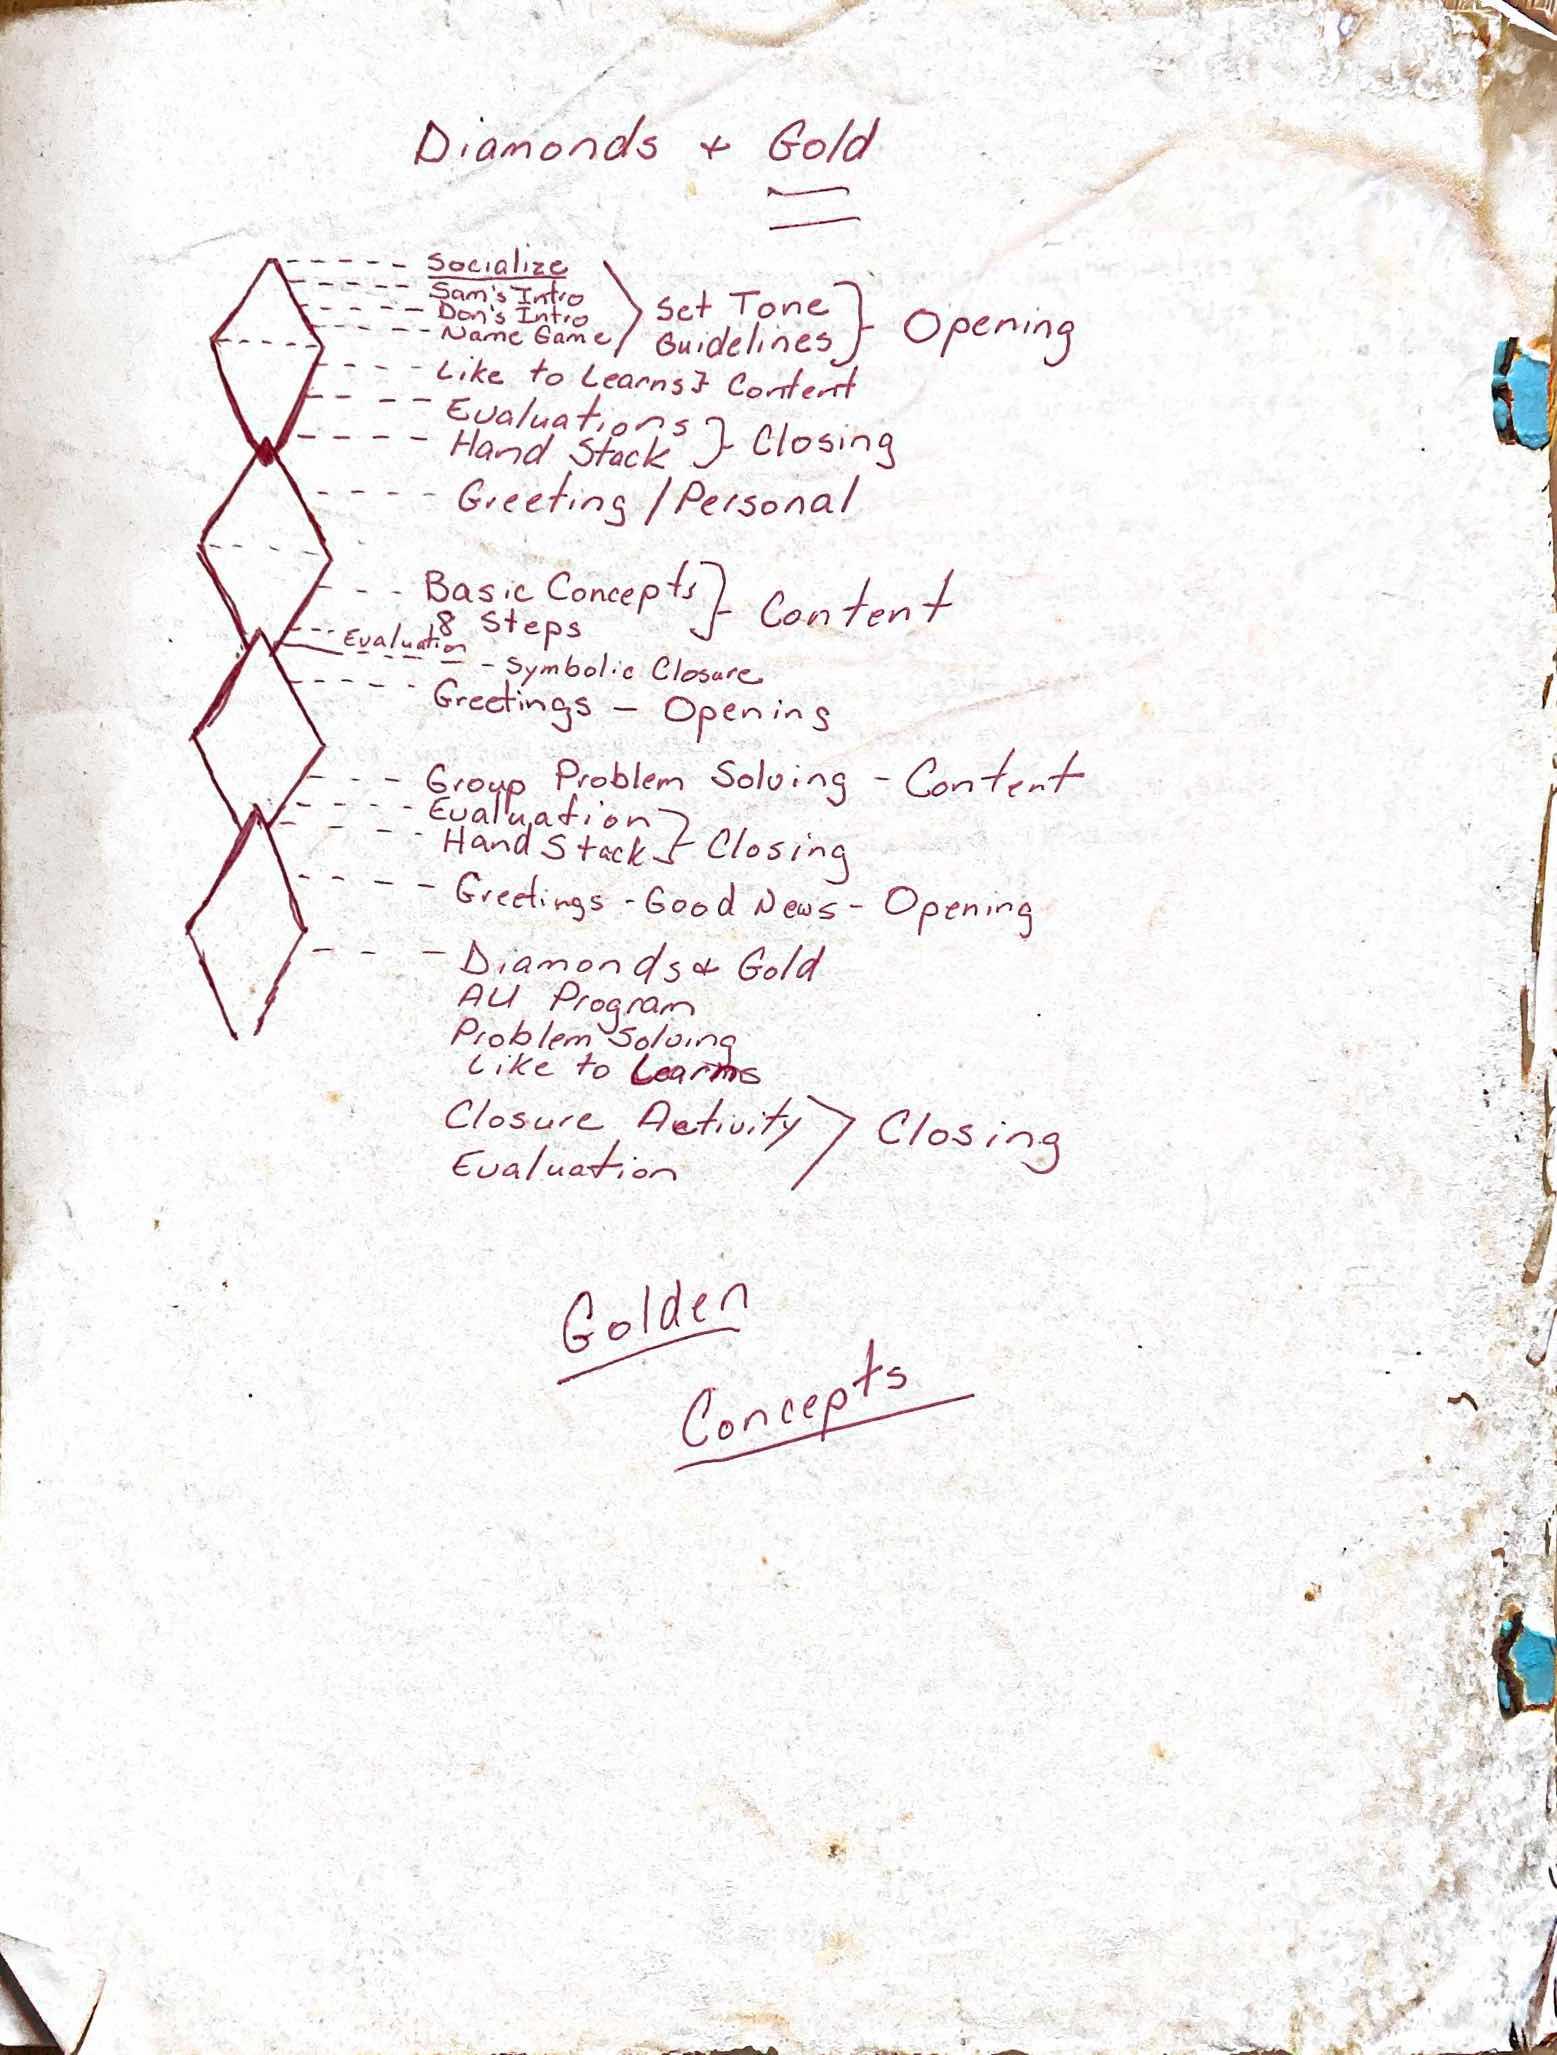 Diamonds + Gold
Socialize
Sam's Intro
Don's Intro
Name Game
Set Tone
Guidelines
Opening
Like to Learns } Content
Evaluations
Hand Stack
} Closing
Greeting / Personal
Basic Concepts
8 Steps
} Content
Evaluation
- Symbolic Closure
Greetings - Opening
Group Problem Solving - Content
Evaluation
Hand Stack
} Closing
Greetings - Good News - Opening
Diamonds + Gold
AU Program
Problem Solving
Like to Learns
Closure Activity
Evaluation
> Closing
Golden
Concepts